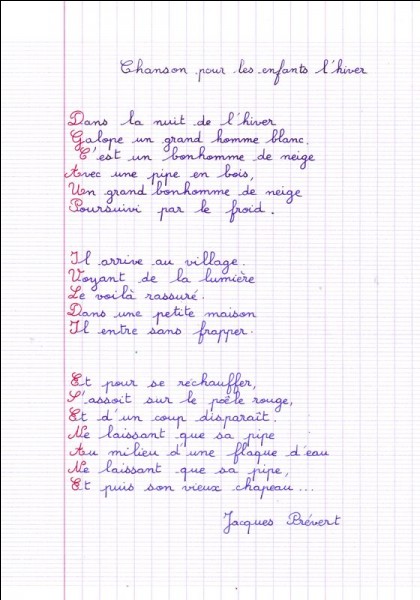 Chanson pour les enfants l'hiver
Dans la nuit de l'hiver
Galope un grand homme blanc.
C'est un bonhomme de neige
Avec une pipe en bois,
Un grand bonhomme de neige
Poursuivi par le froid.
Il arrive au village.
Voyant de la lumière
Le voilà rassuré.
Dans une petite maison
Il entre sans frapper.
Et pour se réchauffer,
S'assoit sur le poêle rouge,
Et d'un coup disparaît.
Ne laissant que sa pipe
Au milieu d'une flaque d'eau
Ne laissant que sa pipe,
Et puis son vieux chapeau...
Jacques Prévert